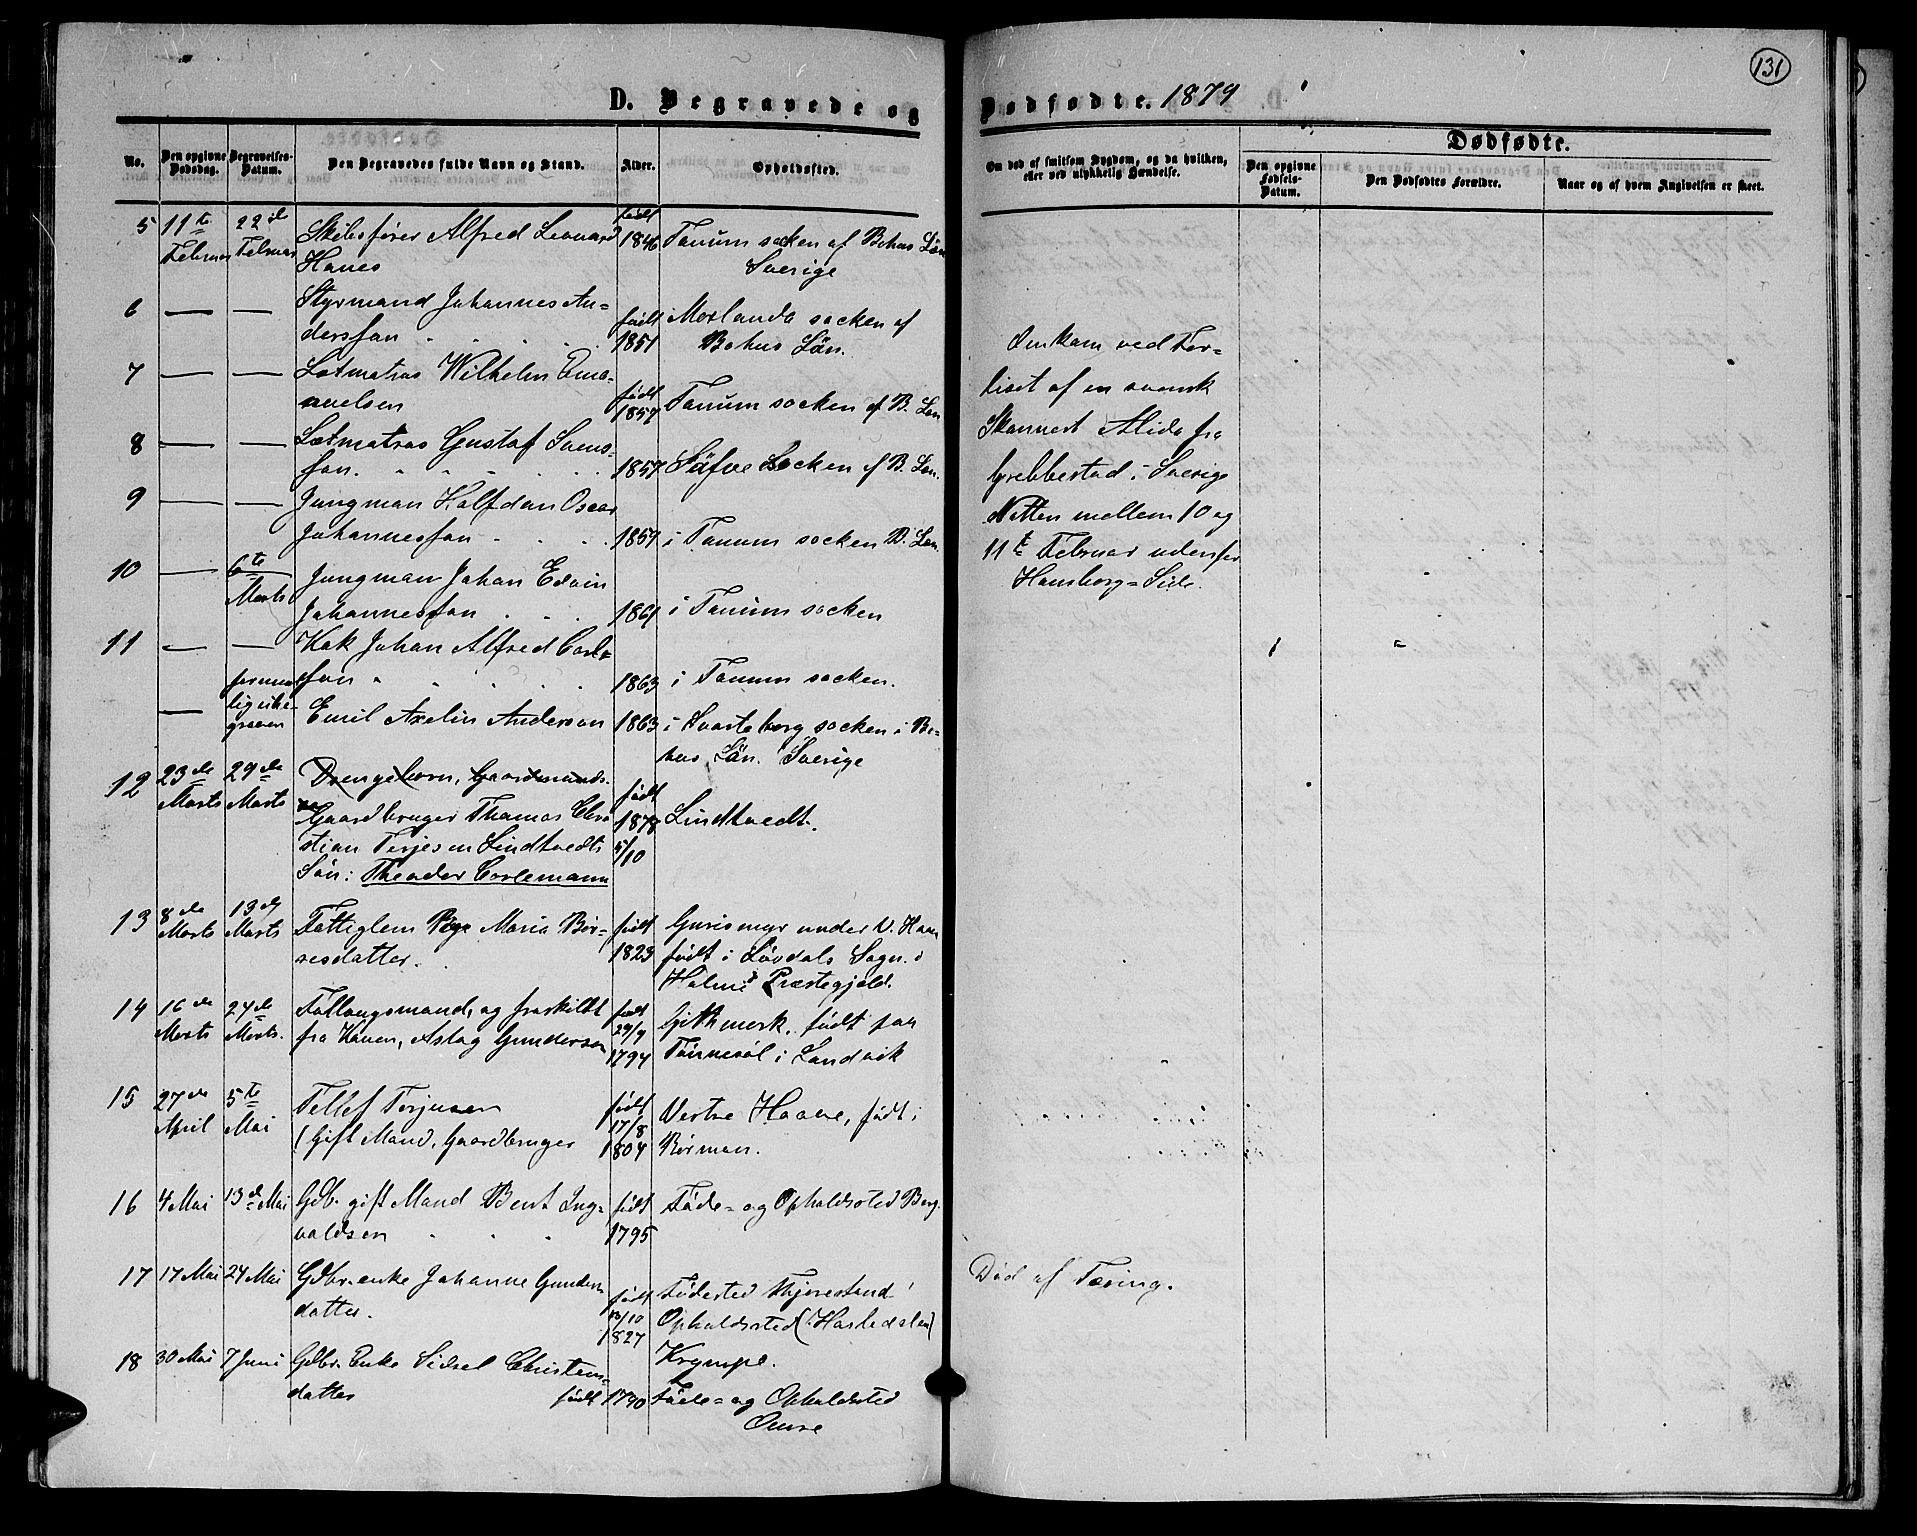 131
D. Begravede og Dødfødte. 1879
No.
Den opgivne Dødsdag.
Begravelses-Datum.
Den Begravedes fulde Navn og Stand.
Alder.
Opholdssted.
Om død af smitsom Sygdom, og da hvilken, eller ved ulykkelig Hændelse.
Dødfødte.
Den opgivne Fødsels-Datum.
Den Dødfødtes Forældre.
Naar og af hvem Angivelsen er skeet.
5 11te Februar 22de Februar Skibsfører Alfred Leonard født 1846 Tanum socken af Bohus Län
Hanes Sverige
6 — — Styrmand Johannes An-
dersson født 1851 Morlanda socken af
Bohus Län.
7 — — Letmatros Wilhelm Ema-
nuelsen født 1857 Tanum socken af B. Län
8 — — Letmatros Gustaf Svens-
son. 1857 Säfve Socken af B. Län.
9 — — Jungman Halfdan Oscar
Johannesson 1859 i Tanum socken B. Län.
10 — 6te Marts Jungman Johan Edvin
Johannesson 1861 i Tanum socken
11 — — Kok Johan Alfred Carl-
son 1863 i Tanum socken.
— Emil Axelin Anderson 1863 i Svarteborg socken i Bo-
hus Län. Sverige
Omkom ved For-
liset af en svensk
Skonnert Alida fra
Grebbestad i Sverige
Natten mellem 10 og
11te Februar udenfor
Homborg-Side.
12 23de Marts 29de Marts Drengebarn, Gaardmands-
Gaardbruger Thomas Chri-
stian Terjesen Lindtvedts
Søn: Theodor Corlemann
født 1878 5/10 Lindtvedt.
13 8de Marts 13de Marts Fattiglem Pige Maria Bør-
resdatter. født 1823
Gurismyr under V. Haave
født i Løvdals Sogn i
Holme Præstegjeld.
14 16de Marts 24de Marts. Fattiugsmand, og fraskildt
fra Konen, Aslag Gundersen
født 29/9 1794 Githmark, født paa
Tønnesøl i Landvik
15 27de April 5te Mai Tellef Terjusen
(Gift Mand, Gaardbruger
født 17/8 1804 Vestre Haave, født i
Rørman.
16 4 Mai 13de Mai Gdb. gift Mand Bent Ing-
valdsen født 1795 Føde- og Opholdssted Berg.
17 17 Mai 24 Mai Gdbr. enke Johanne Gunders
datter. født 10/10 1827 Fødested Thjorestand
Opholdssted (Hasledalen)
Krympe.
Død af Tæring.
18 30 Mai 7 Juni Gdbr. Enke Sidsel Christens-
datter født 1790 Føde- og Opholdssted
Omre